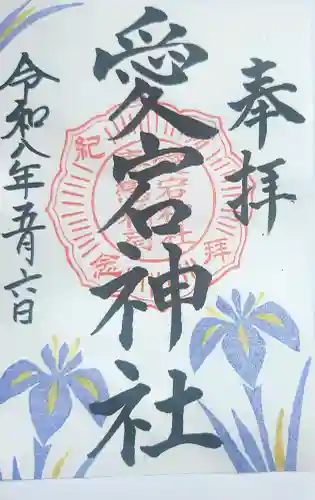 奉拝
愛宕神社
令和八年五月六日